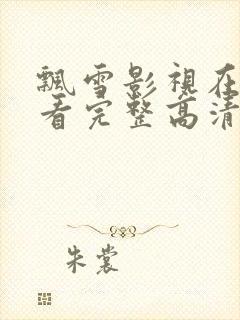 飄雪影視在
看完整高清
朱裳